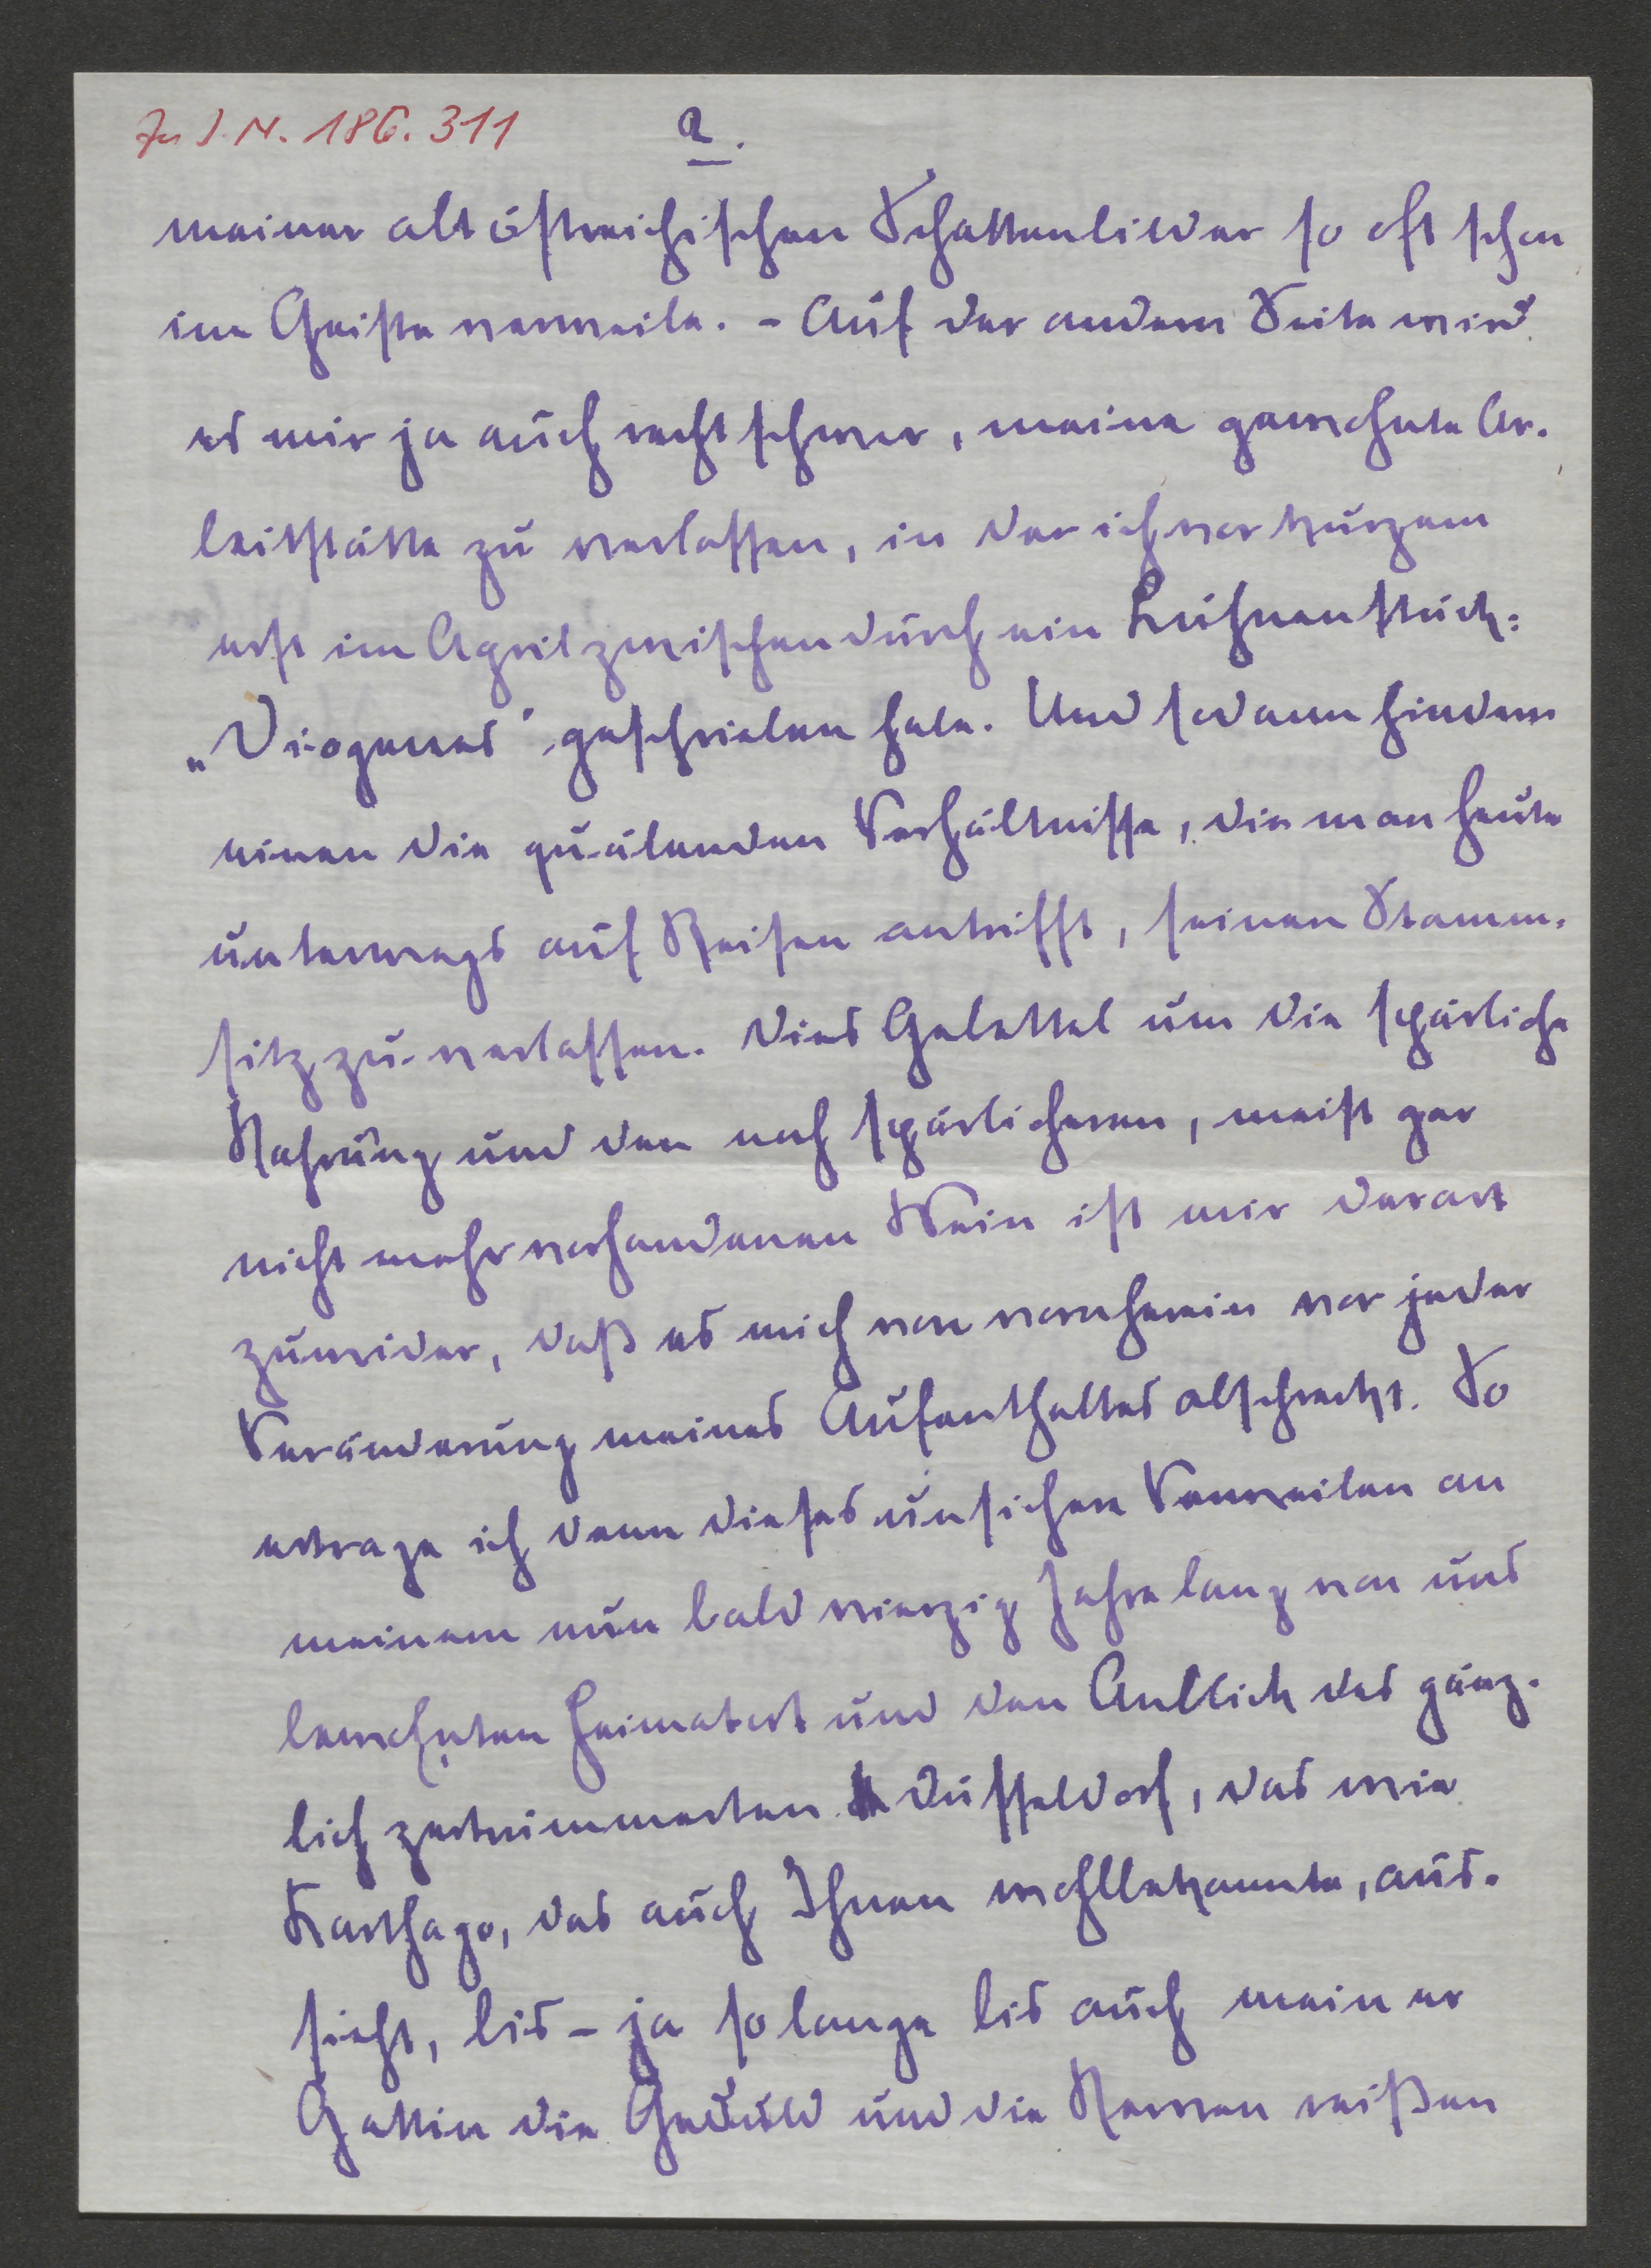 Zu I.N. 186.311
2.
meiner altöstreichischen Schattenbilder so oft schon
im Geiste verweile. - Auf der andern Seite wird
es mir ja auch recht schwer, meine gewohnte Ar-
beitsstätte zu verlassen, in der ich vor kurzem
erst im April zwischendurch ein Bühnenstück:
„Diogenes" geschrieben habe. Und sodann hindern
einen die quälenden Verhältnisse, die man heute
unterwegs auf Reisen antrifft, seinen Stamm-
sitz zu verlassen. Dies Gebettel um die spärliche
Nahrung und den noch spärlicheren, meist gar
nicht mehr vorhandenen Wein ist mir derart
zuwider, daß es mich von vornherein vor jeder
Veränderung meines Aufenthaltes abschreckt. So
ertrage ich denn dieses unsichere Verweilen an
meinem nun bald vierzig Jahre lang von uns
bewohnten Heimatort und den Anblick des gänz-
lich zertrümmerten Düsseldorf, das wie
Karthago, das auch Ihnen wohlbekannte, aus-
sieht, bis - ja so lange bis auch meiner
Gattin die Geduld und die Nerven reißen